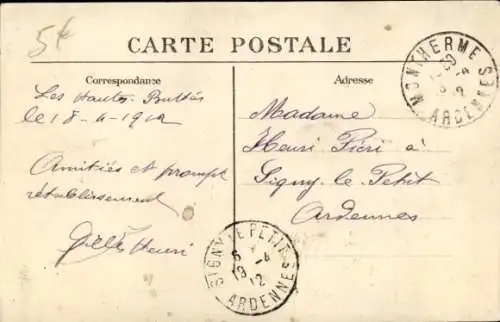 5€
CARTE POSTALE
Correspondance
Adresse
Les Hautes-
le 18-4-1912
Amitiés et prompt
rétablissement
Henri
Madame
Henri
Signy-le-Petit
Ardennes
MONTHERMÉ
ARDENNES
SIGNY-LE-PETIT
19-4
12
ARDENNES